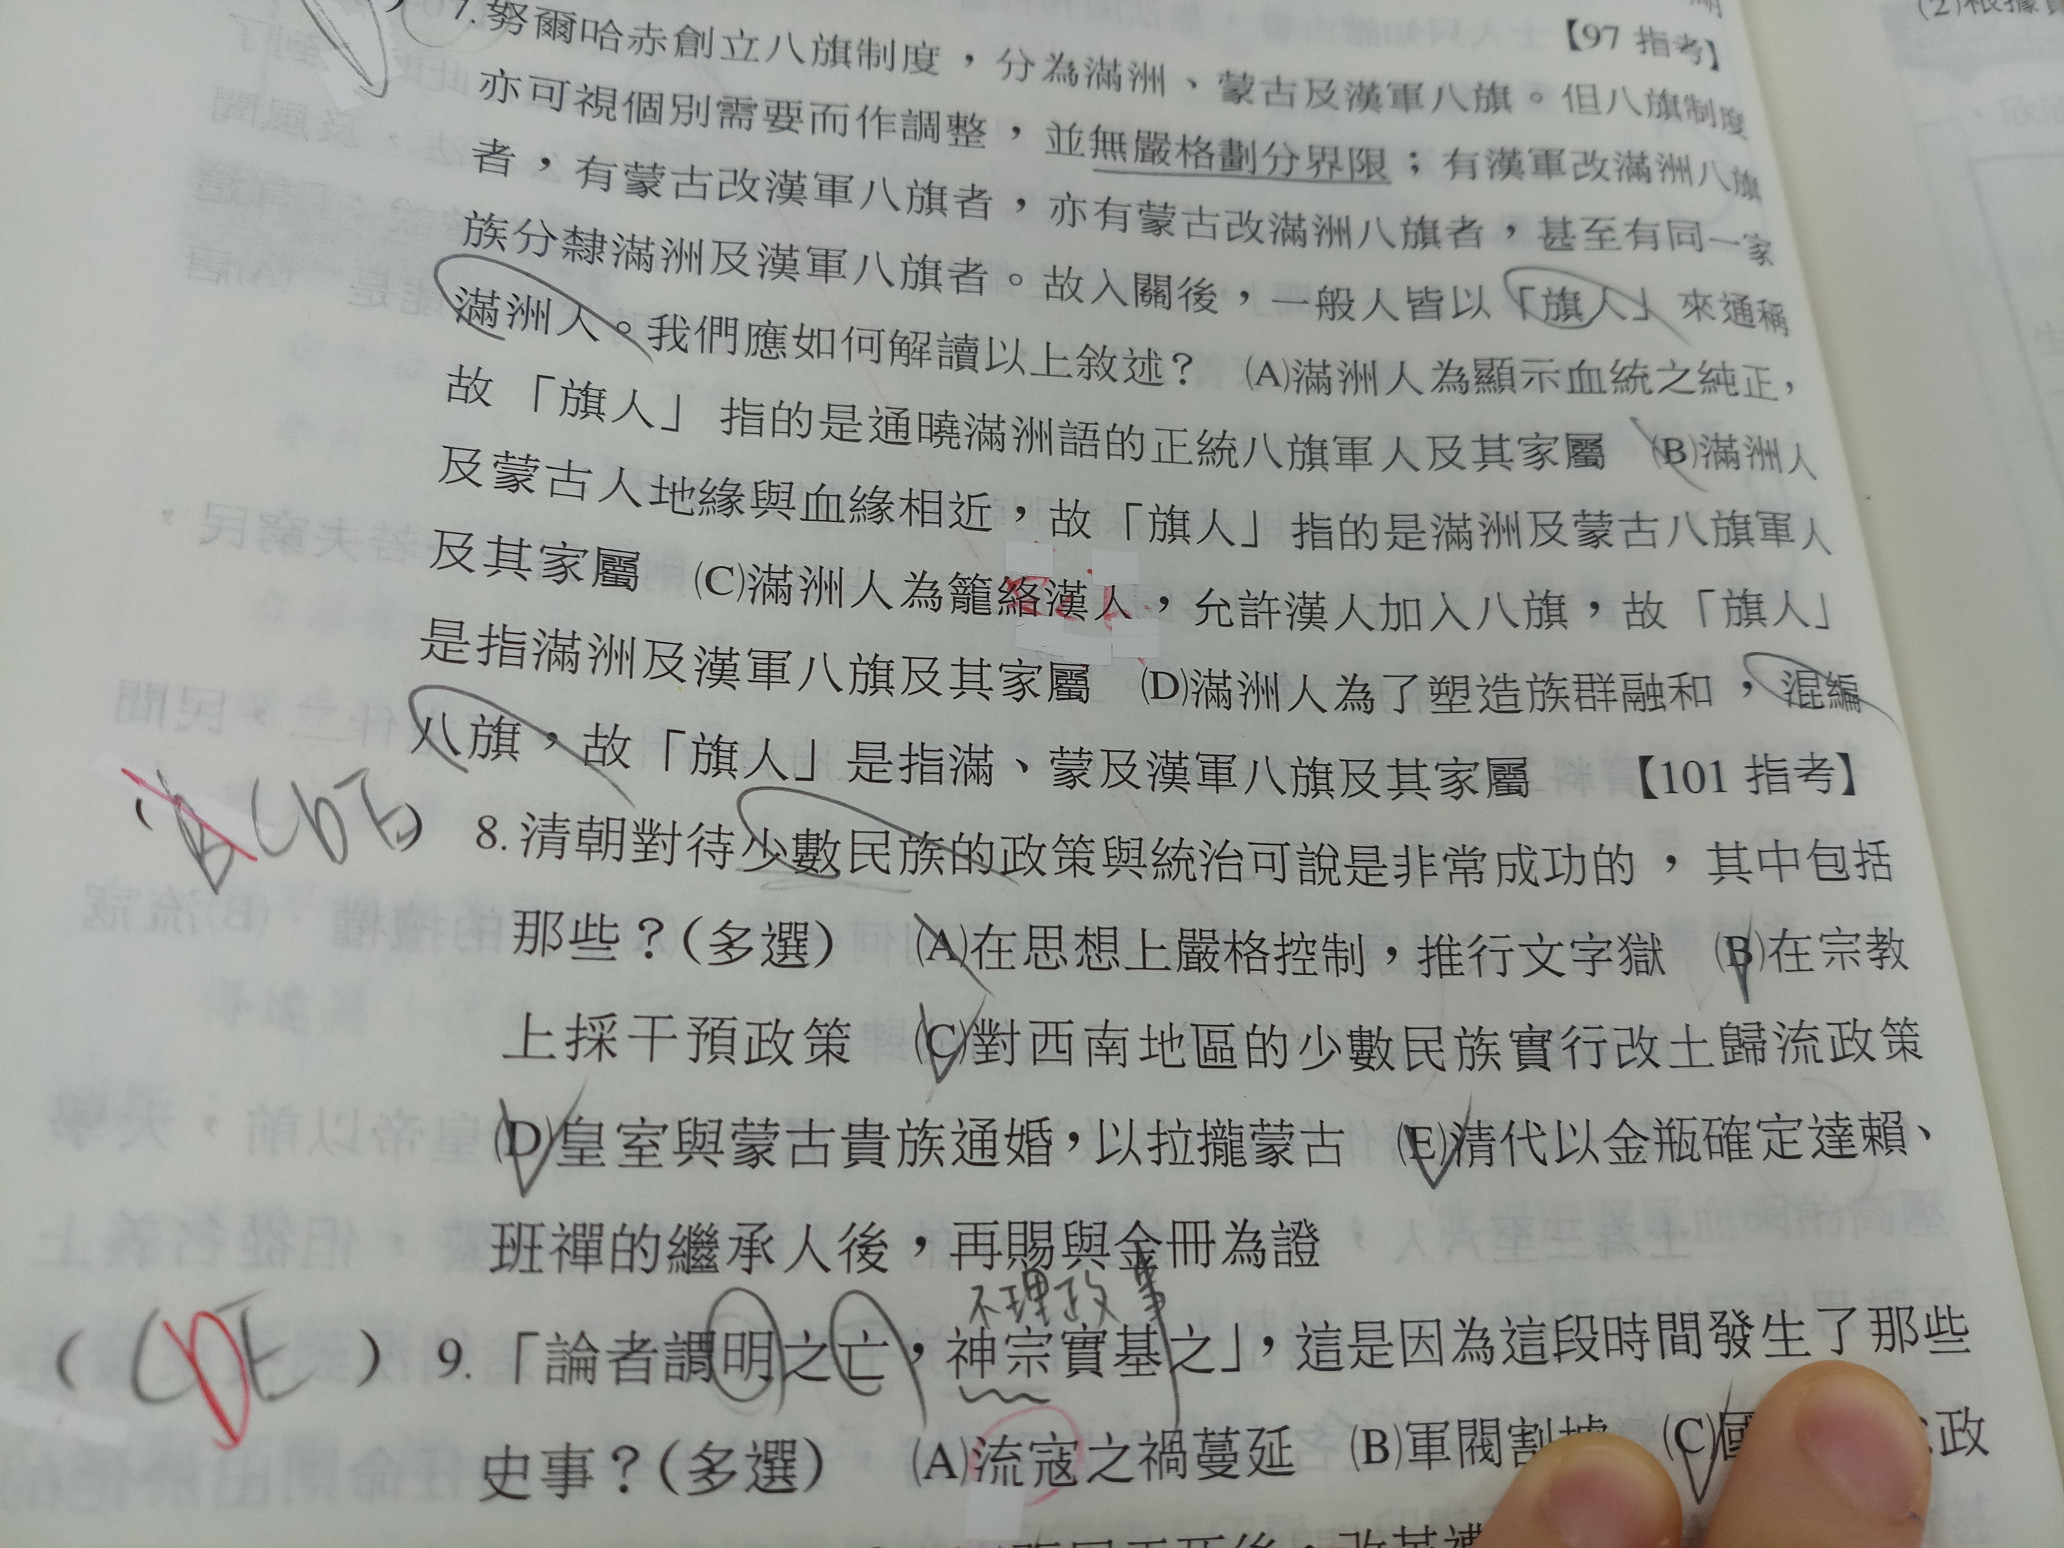 7.努爾哈赤創立八旗制度，分為滿洲、蒙古及漢軍八旗。但八旗制度
【97 指考】
亦可視個別需要而作調整，並無嚴格劃分界限；有漢軍改滿洲八旗
者，有蒙古改漢軍八旗者，亦有蒙古改滿洲八旗者，甚至有同一家
族分隸滿洲及漢軍八旗者。故入關後，一般人皆以「旗人」來通稱
滿洲人。我們應如何解讀以上敘述？ (A)滿洲人為顯示血統之純正，
故「旗人」指的是通曉滿洲語的正統八旗軍人及其家屬 (B)滿洲人
及蒙古人地緣與血緣相近，故「旗人」指的是滿洲及蒙古八旗軍人
及其家屬 (C)滿洲人為籠絡漢人，允許漢人加入八旗，故「旗人」
是指滿洲及漢軍八旗及其家屬 (D)滿洲人為了塑造族群融和，混編
八旗，故「旗人」是指滿、蒙及漢軍八旗及其家屬 【101 指考】
( CDE ) 8.清朝對待少數民族的政策與統治可說是非常成功的，其中包括
那些？(多選) (A)在思想上嚴格控制，推行文字獄 (B)在宗教
上採干預政策 (C)對西南地區的少數民族實行改土歸流政策
(D)皇室與蒙古貴族通婚，以拉攏蒙古 (E)清代以金瓶確定達賴、
班禪的繼承人後，再賜與金冊為證
不理政事
( CDE ) 9.「論者謂明之亡，神宗實基之」，這是因為這段時間發生了那些
史事？(多選) (A)流寇之禍蔓延 (B)軍閥割據 (C)國 政